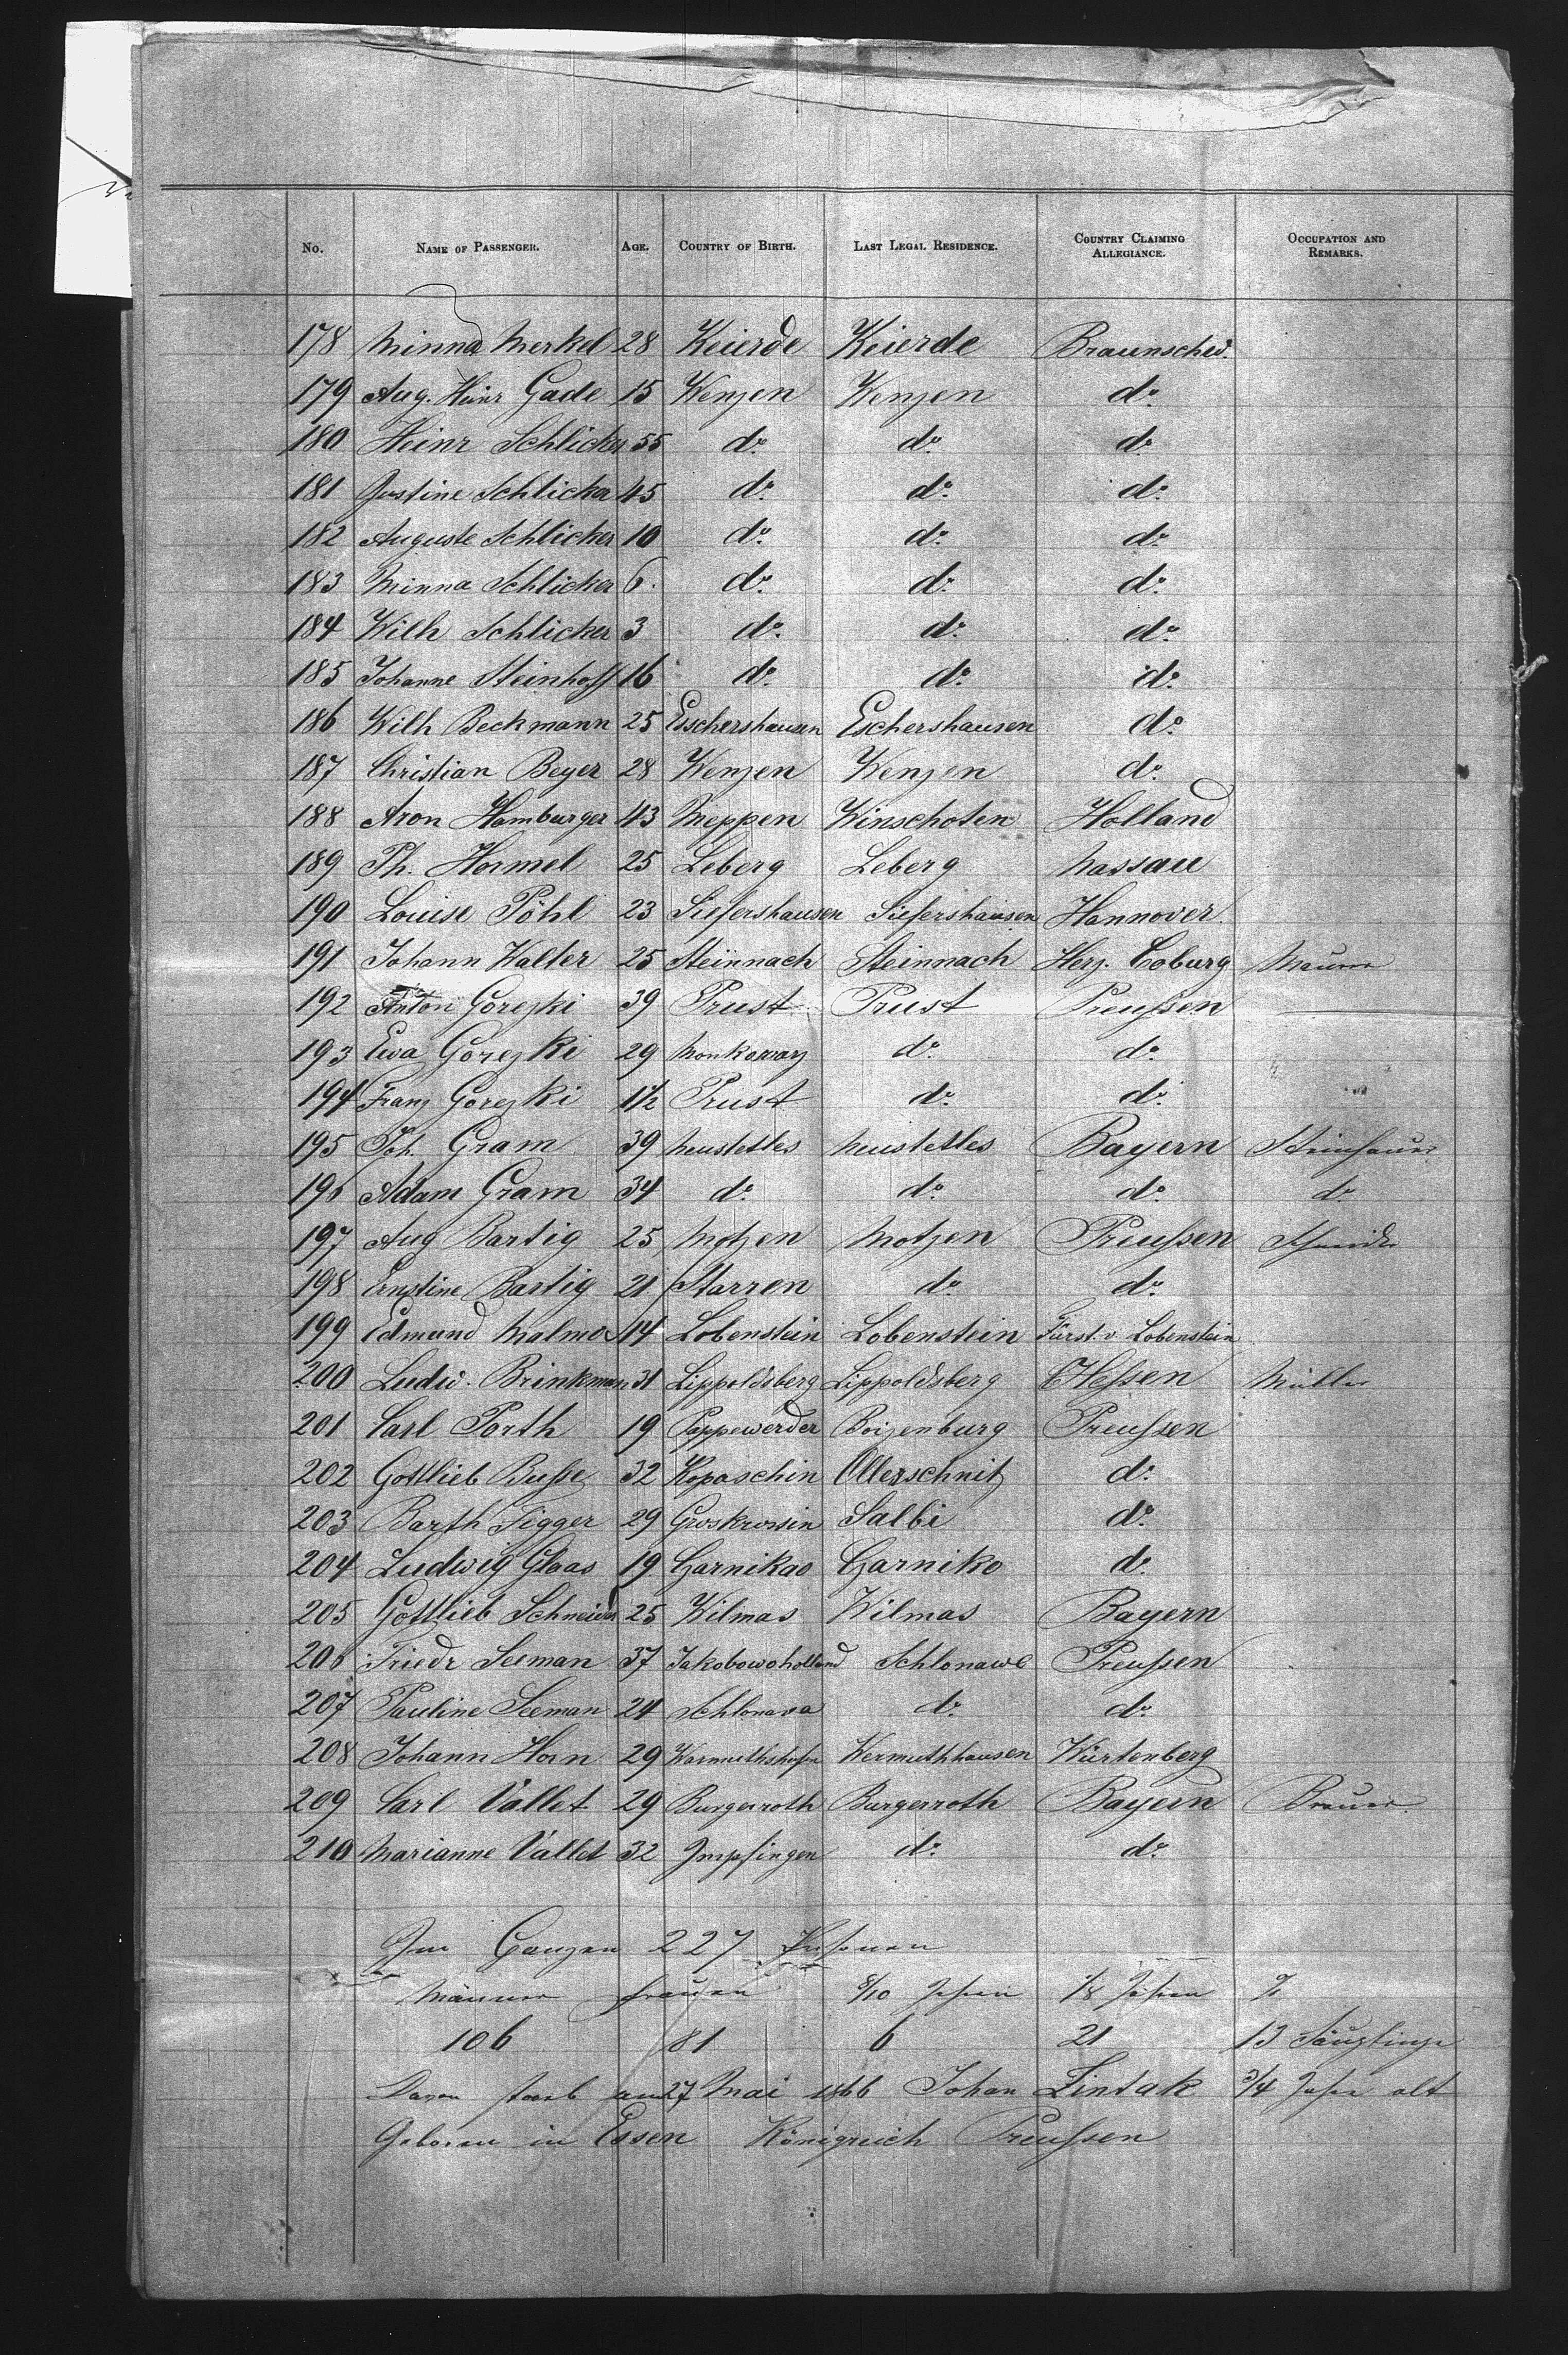 No. NAME OF PASSENGER. AGE. COUNTRY OF BIRTH. LAST LEGAL RESIDENCE. COUNTRY CLAIMING ALLEGIANCE. OCCUPATION AND REMARKS.
178 Minna Merkel 28 Keierde Keierde Braunschw.
179 Aug. Heinr Gade 15 Wenzen Wenzen do.
180 Heinr Schlicker 55 do. do. do.
181 Justine Schlicker 45 do. do. do.
182 Auguste Schlicker 10 do. do. do.
183 Minna Schlicker 6. do. do. do.
184 Wilh Schlicker 3 do. do. do.
185 Johanne Steinhoff 16 do. do. do.
186 Wilh Beckmann 25 Esschershausen Eschershausen do.
187 Christian Beyer 28 Wenzen Wenzen do.
188 Aron Hamburger 43 Meppen Winschoten Holland
189 Ph. Hormel 25 Leberg Leberg Nassau
190 Louise Pöhl 23 Siefershausen Siefershausen Hannover.
191 Johann Walter 25 Steinnach Steinnach Herz. Coburg Maurer
192 Anton Gorezki 39 Prust Prust Preußen
193 Eva Gorezki 29 Monkowarz do. do.
194 Franz Gorezki 1 1/2 Prust do. do.
195 Joh. Gram 39 Neustettes Neustettes Bayern Steinhauer
196 Adam Gram 34 do. do. do. do
197 Aug Bartig 25 Motzen Motzen Preußen Schneider
198 Ernstine Bartig 21 Starren do. do.
199 Edmund 14 Lobenstein Lobenstein Fürst. v. Lobenstein
200 Ludw. Brinkmann 31 Lippoldsberg Lippoldsberg CHeßen Müller
201 Carl Porth 19 Pappewerder Boizenburg Preußen
202 Gottlieb Buße 32 Kopaschin Ollerschnitz do.
203 Barth Sigger 29 Groskrossin Salbi do.
204 Ludwig Glaas 19 Czarnikao Czarniko do.
205 Gottlieb Schneider 25 Wilmas Wilmas Bayern
206 Friedr Seeman 37 Jakobowoholland Schlonawe Preußen
207 Pauline Seeman 24 Schlonawa do. do.
208 Johann Horn 29 Warmuthshofn Wermuthhausen Würtenberg
209 Carl Vallet 29 Burgerroth Burgerroth Bayern Brauer.
210 Marianne Vallet 32 Impfingen do. do.
Im Ganzen 227 Personen
Männer Frauen 8/10 Jahren 1/8 Jahren %
106 81 6 21 13 Säuglinge
Davon starb am 27 Mai 1866 Johan Lindak 3/4 Jahr alt
Geboren in Essen Königreich Preußen